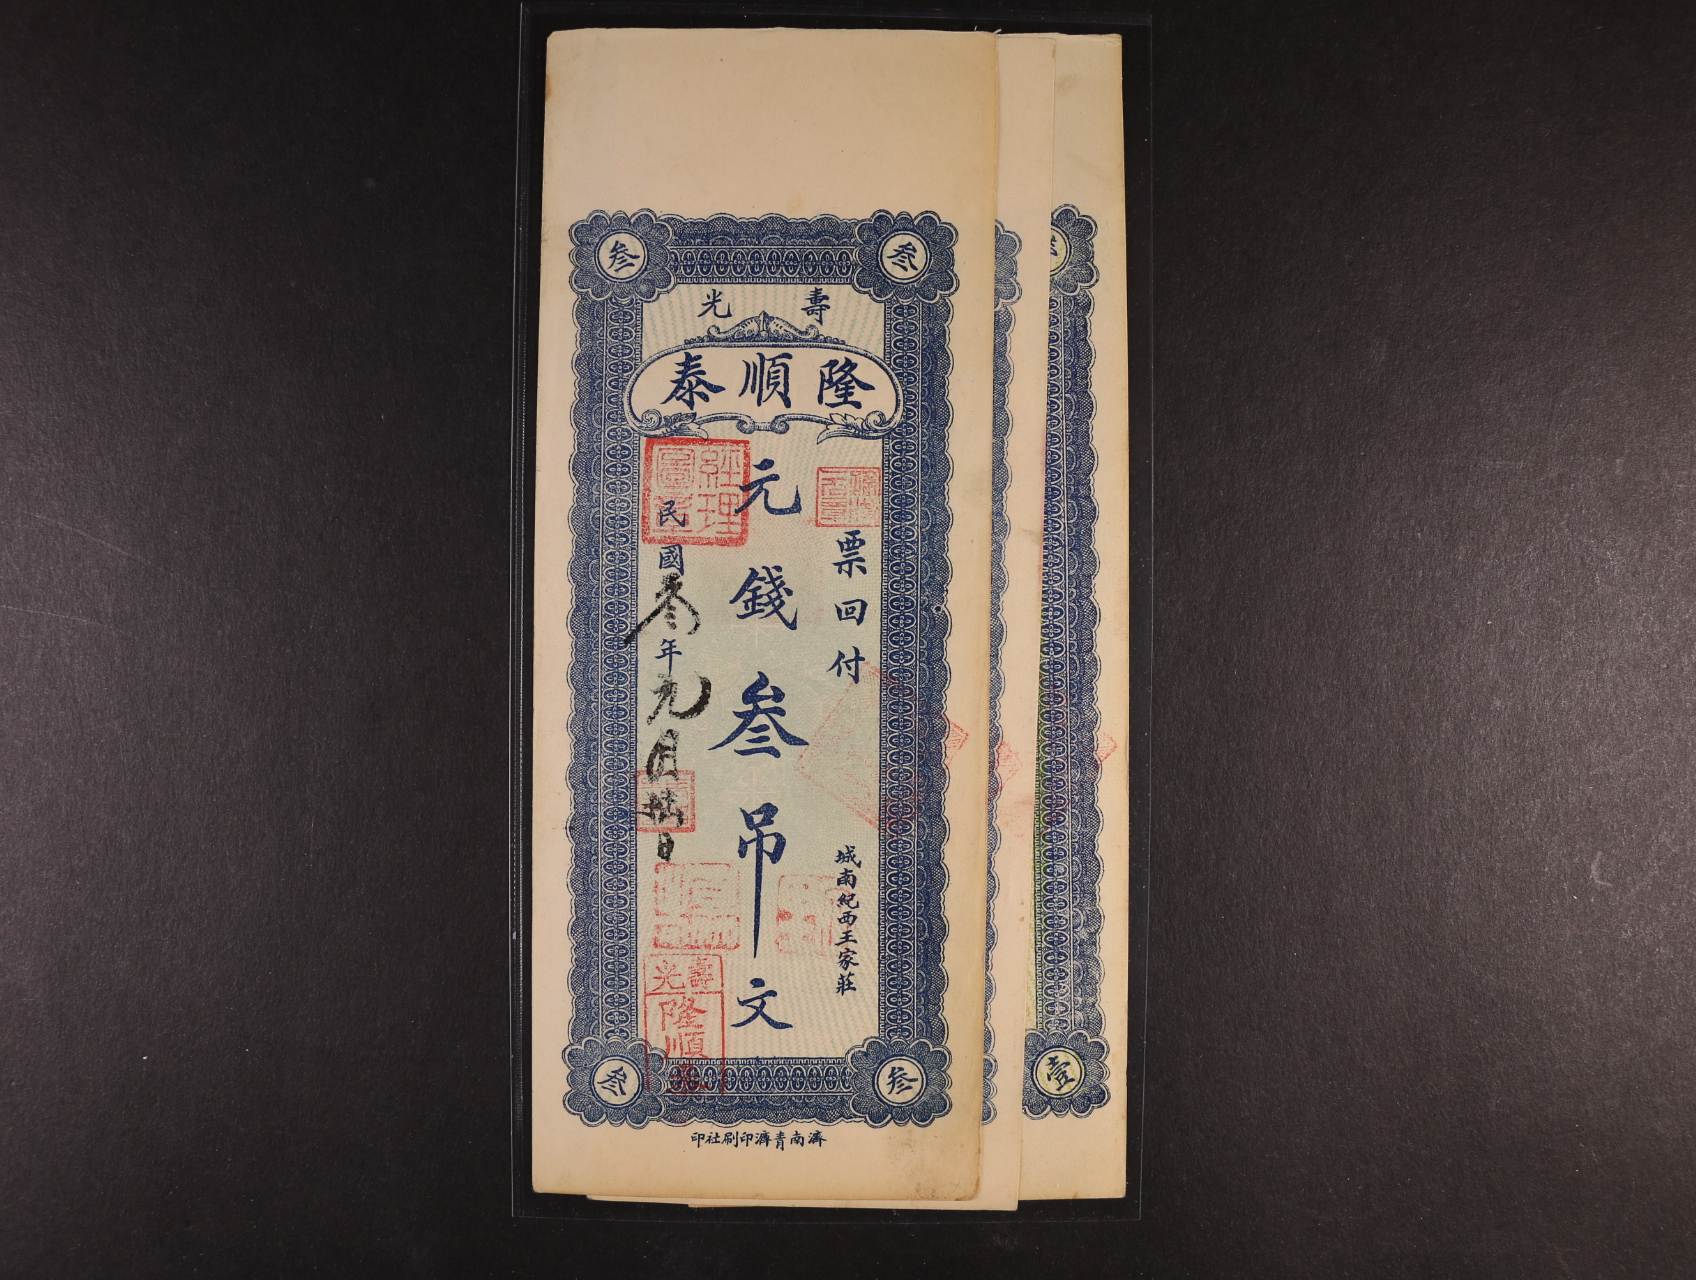 叁 叁
壽光
隆順泰
票回付
城南紀西王家莊
元錢叁吊文
經理圖章
民國叁年元月廿日
壽光
隆順泰
叁 叁
壹
濟南青濟印刷社印